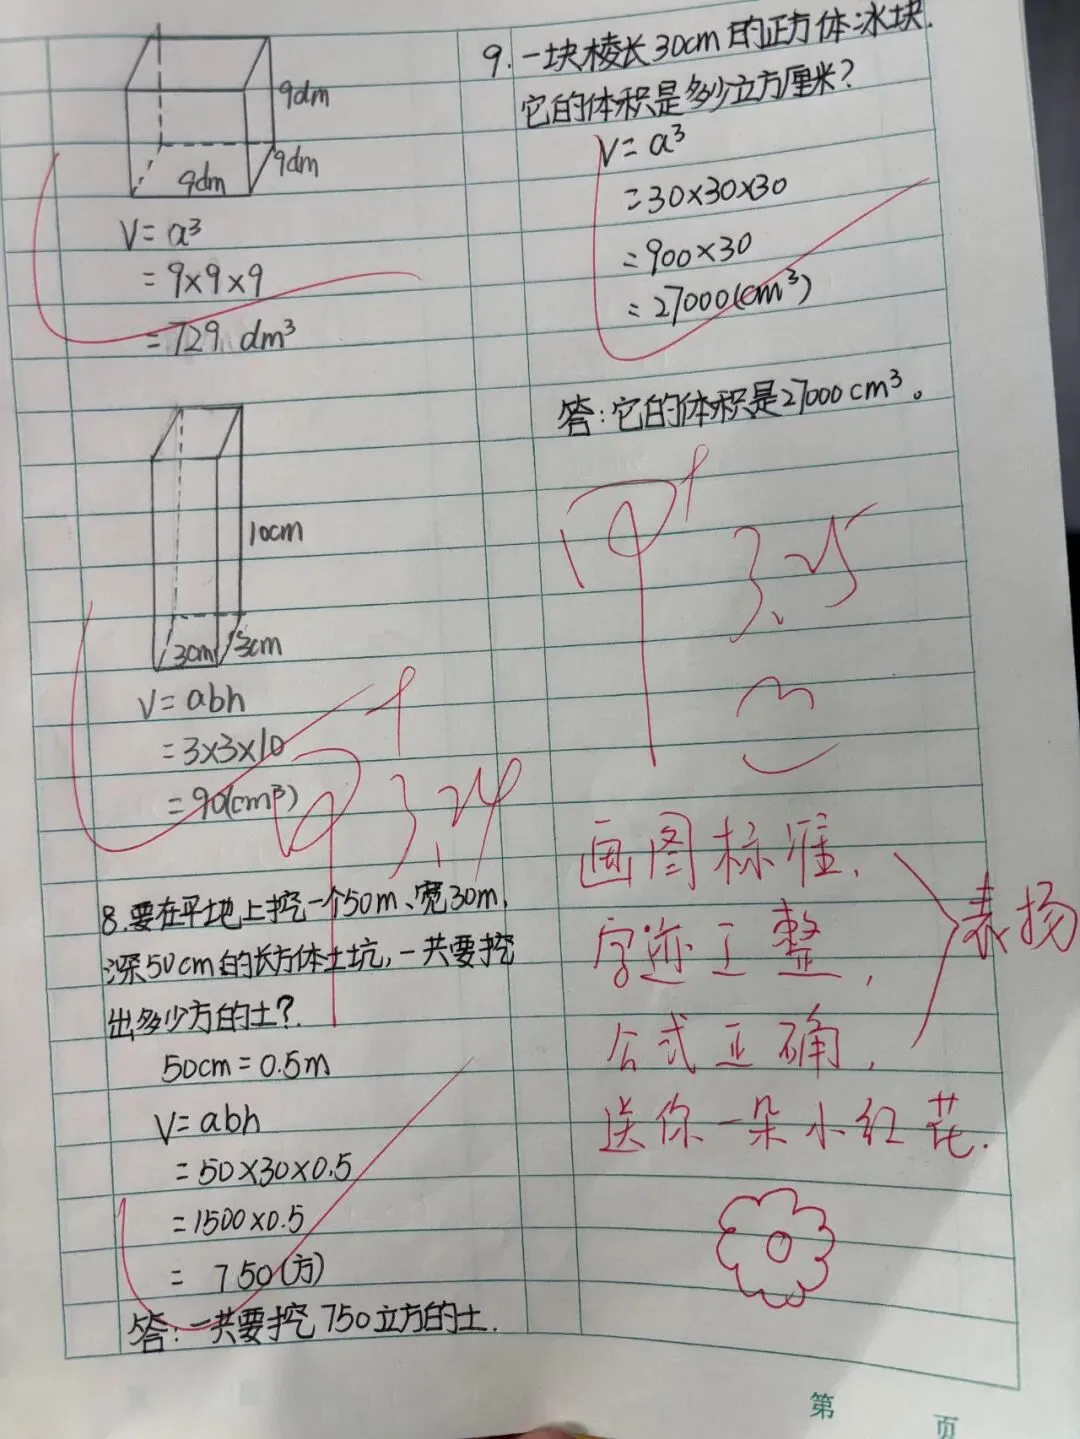 9dm
9dm
9dm
V=a³
=9×9×9
=729 dm³
10cm
3cm
3cm
V=abh
=3×3×10
=90(cm³)
甲+
3.24
8.要在平地上挖一个50m、宽30m,
深50cm的长方体土坑,一共要挖
出多少方的土?
50cm=0.5m
V=abh
=50×30×0.5
=1500×0.5
= 750(方)
答:一共要挖750立方的土.
9.一块棱长30cm的正方体冰块.
它的体积是多少立方厘米?
V=a³
=30×30×30
=900×30
=27000(cm³)
答:它的体积是27000cm³。
甲+
3.25
画图标准,
字迹工整,
公式正确,
表扬
送你一朵小红花.
第 页